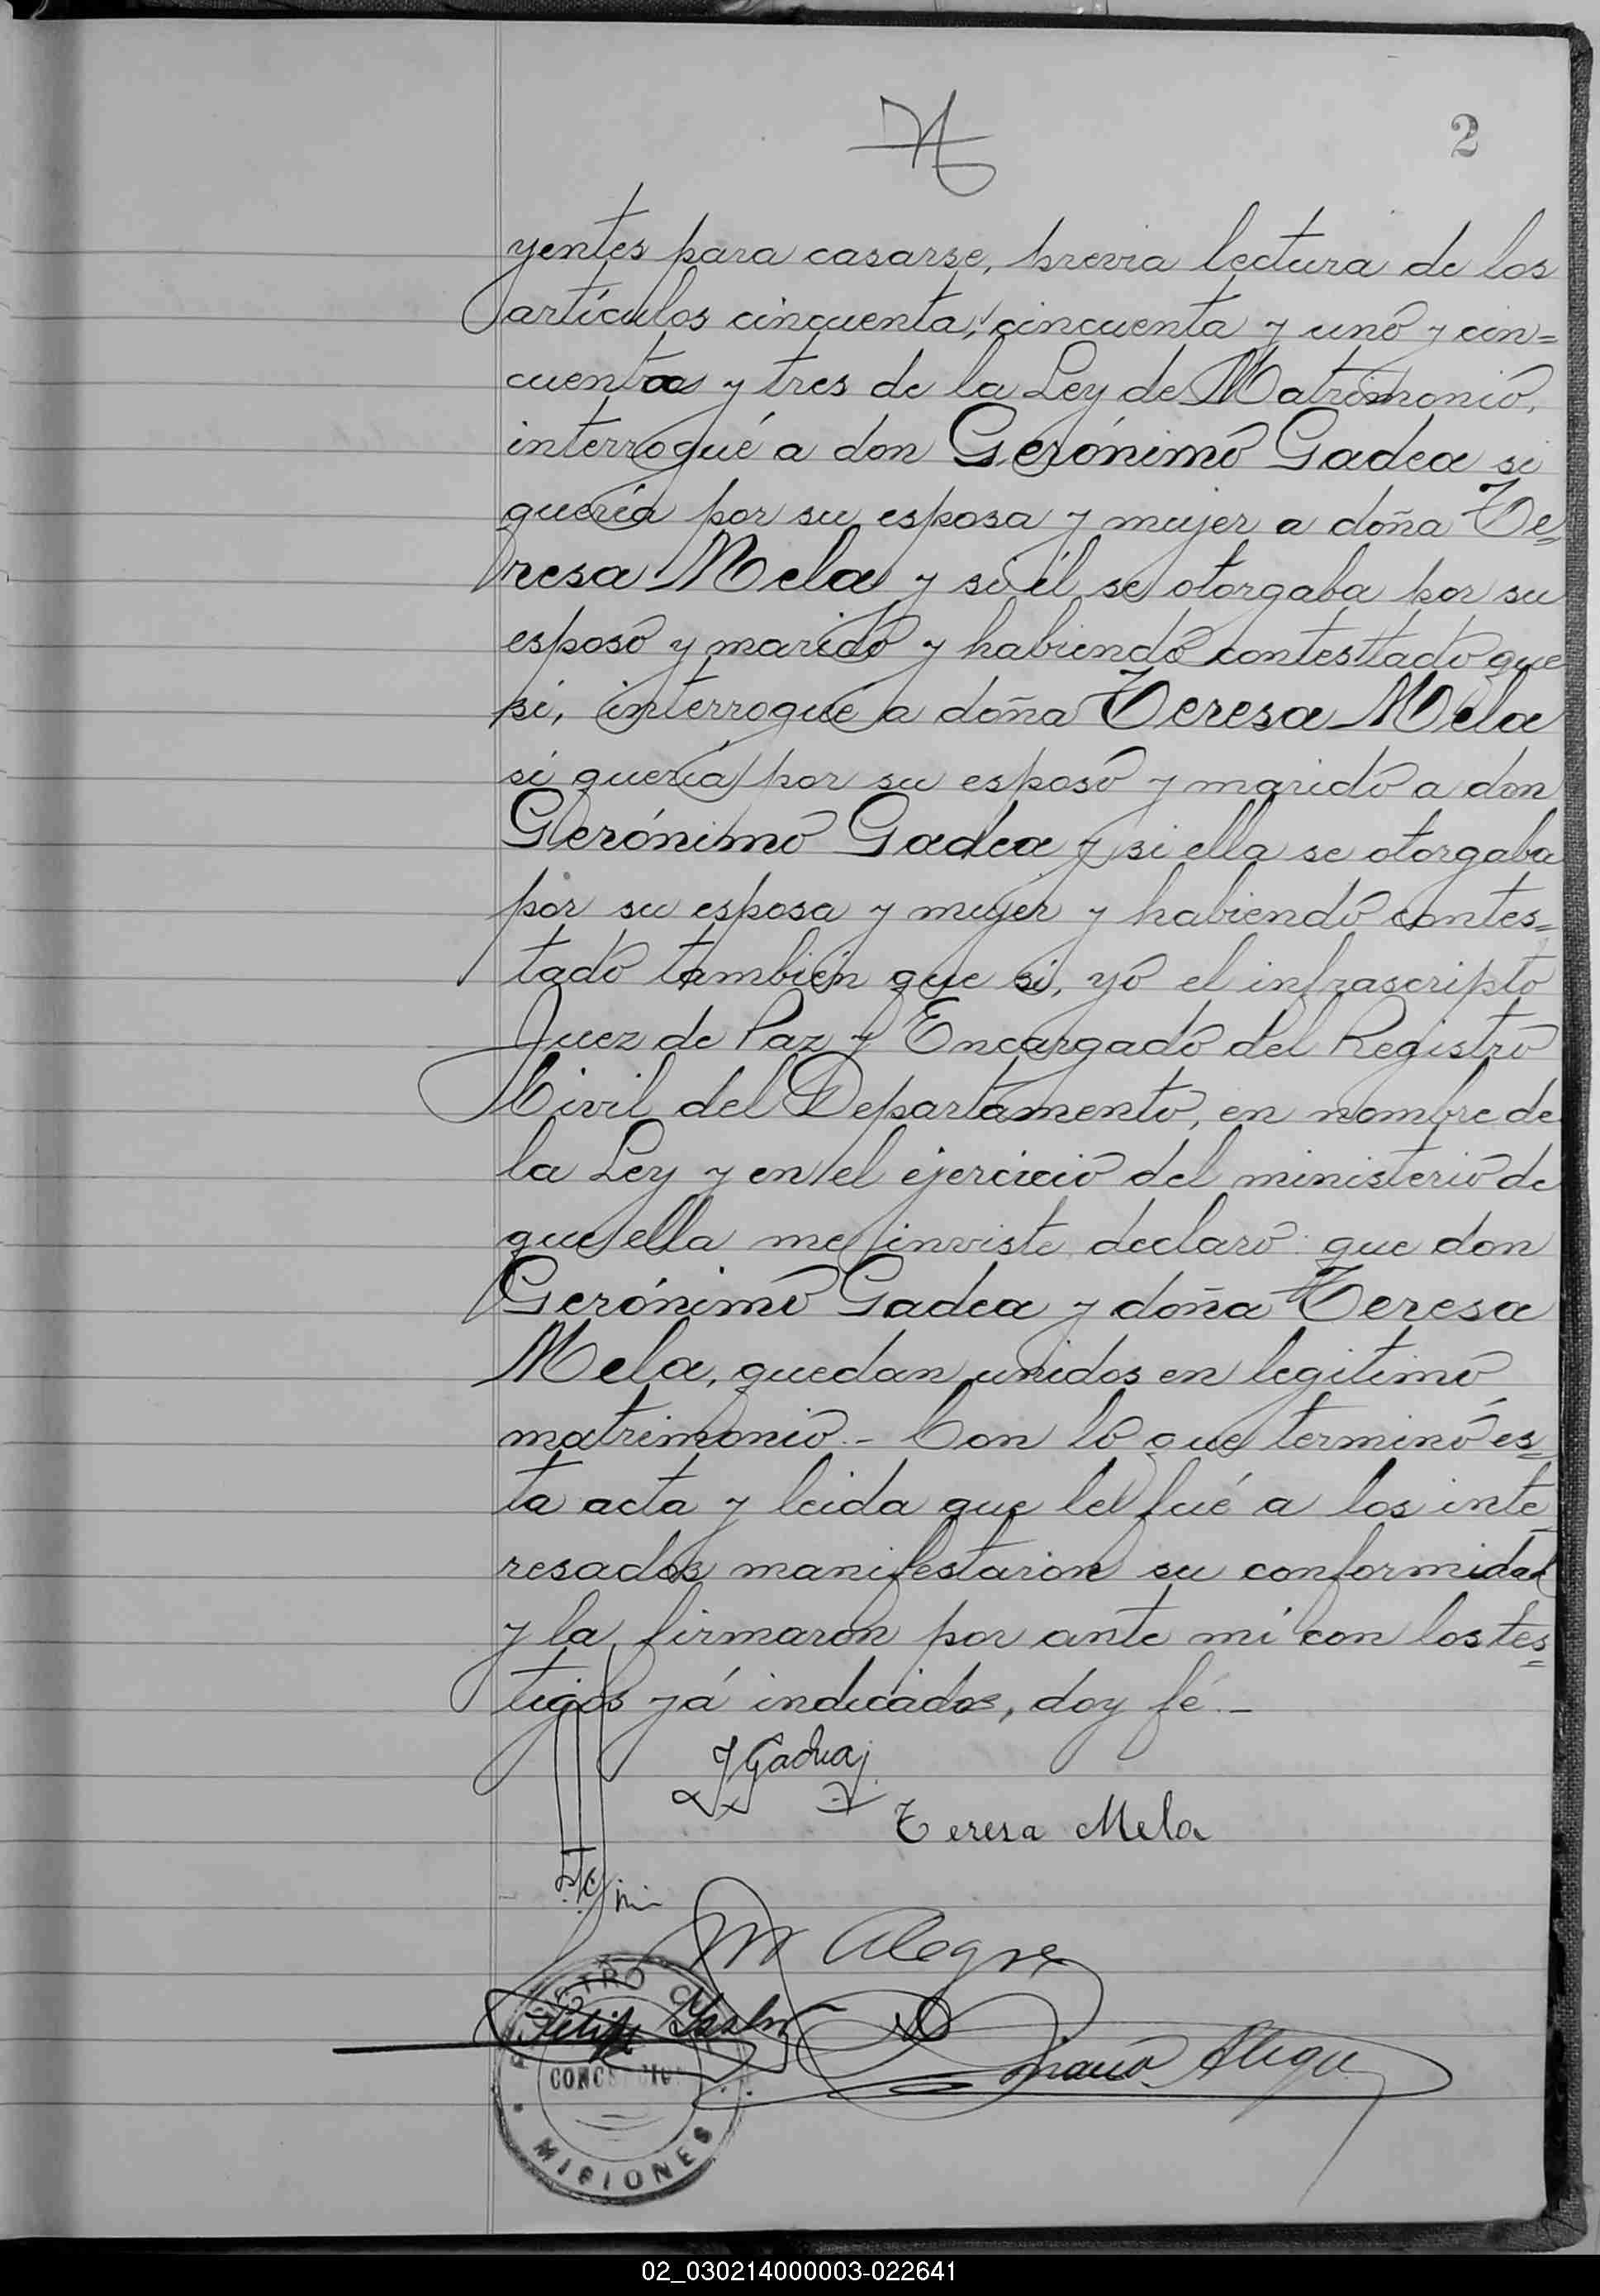 2
yentes para casarse, previa lectura de los
artículos cincuenta, cincuenta y uno y cin=
cuenta y tres de la Ley de Matrimonio,
interrogué a don Gerónimo Gadea si
quería por su esposa y mujer a doña Te=
resa Mela y si él se otorgaba por su
esposo y marido y habiendo contestado que
si, interrogué a doña Teresa Mela
si quería por su esposo y marido a don
Gerónimo Gadea y si ella se otorgaba
por su esposa y mujer y habiendo contes=
tado también que si, yo el infrascripto
Juez de Paz y Encargado del Registro
Civil del Departamento, en nombre de
la Ley y en el ejercicio del ministerio de
que ella me inviste declaro: que don
Gerónimo Gadea y doña Teresa
Mela, quedan unidos en legitimo
matrimonio.- Con lo que terminó es=
ta acta y leida que le fué a los inte
resados manifestaron su conformidad
y la firmaron por ante mi con los tes=
tigos yá indicados, doy fé.-
Teresa Mela
M Alegre
REGISTRO CIVIL
CONCEPCION
MISIONES
02_030214000003-022641